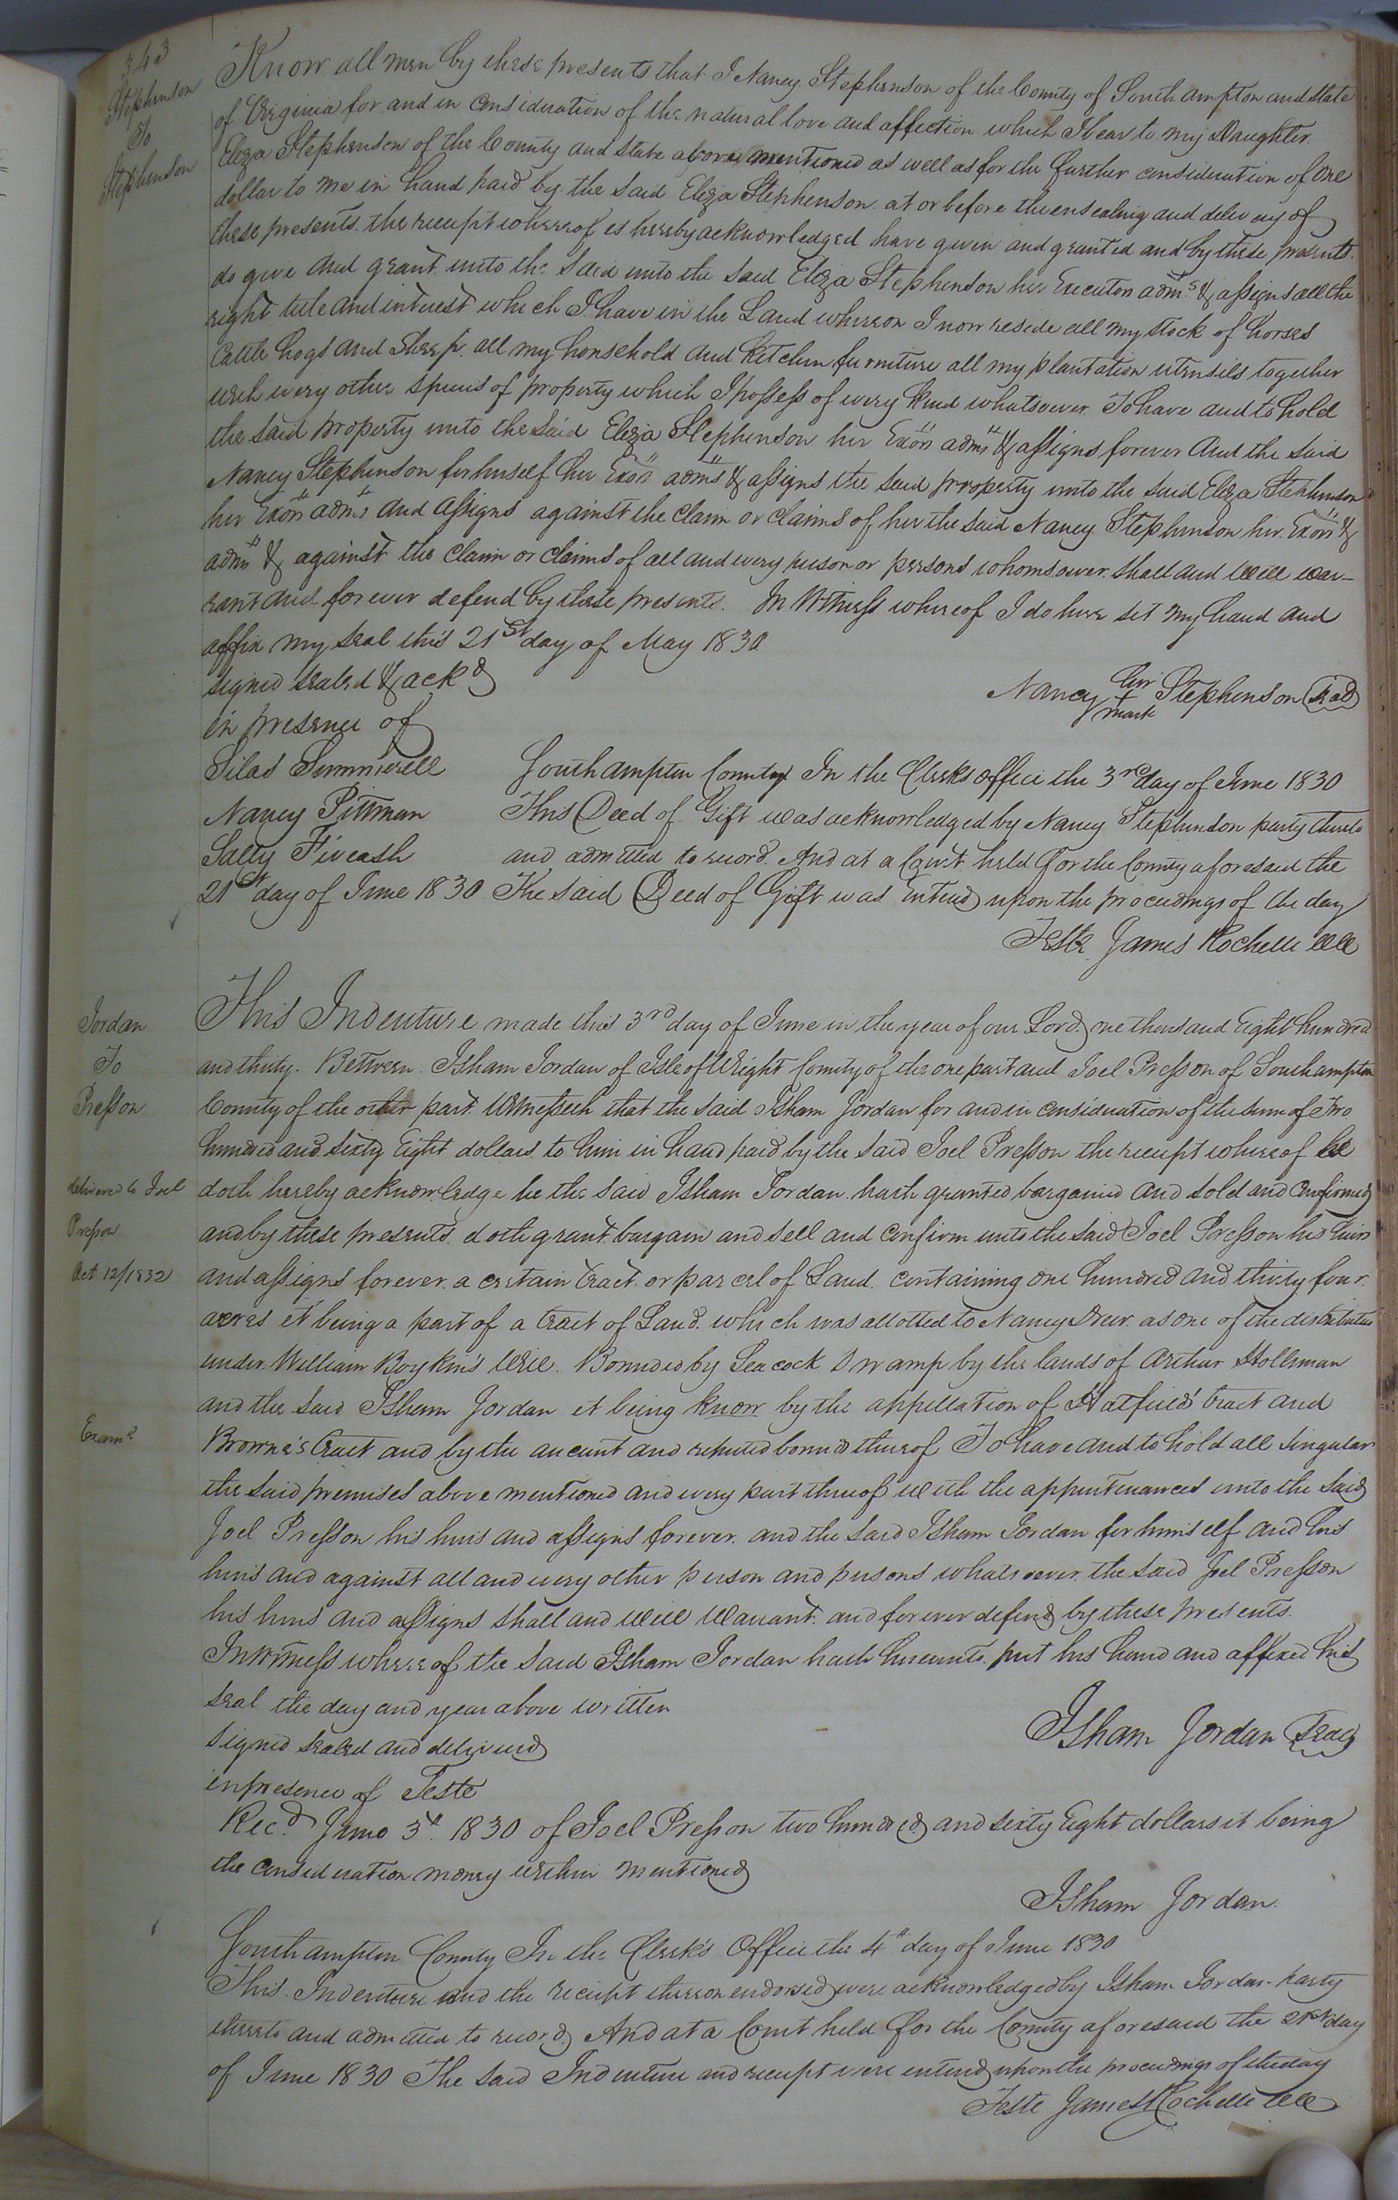 343
Stephenson
To
Stephenson
Know all men by these presents that I Nancy Stephenson of the County of Southampton and state
of Virginia for and in consideration of the natural love and affection which I bear to my Daughter
Eliza Stephenson of the County and state above mentioned as well as for the further consideration of one
dollar to me in hand paid by the said Eliza Stephenson at or before the ensealing and delivery of
these presents the receipt whereof is hereby acknowledged have given and granted and by these presents
do give and grant unto the said unto the said Eliza Stephenson her Executors adms & assigns all the
right title and interest which I have in the Land whereon I now reside all my stock of horses
Cattle hogs and Sheep, all my household and Kitchen furniture all my plantation utensils together
with every other species of property which I possess of every kind whatsoever To have and to hold
the said property unto the said Eliza Stephenson her Exors adms & assigns forever And the said
Nancy Stephenson for herself her Exors adms & assigns the said property unto the said Eliza Stephenson
her Exors adms and assigns against the claim or claims of her the said Nancy Stephenson her Exors &
adms & against the claim or claims of all and every person or persons whomsoever shall and will war-
rant and forever defend by these presents. In Witness whereof I do here set my hand and
affix my seal this 21st day of May 1830
signed sealed & ackd
in presence of
Nancy her + mark Stephenson Seal
Silas Summerell
Nancy Pittman
Sally Fiveash
Southampton County In the Clerks office the 3rd day of June 1830
This Deed of Gift was acknowledged by Nancy Stephenson party thereto
and admitted to record. And at a Court held for the County aforesaid the
21st day of June 1830 The said Deed of Gift was Entered upon the proceedings of the day
Teste James Rochelle
Jordan
To
Presson
delivered to Joel
Presson
Oct 12/1832
Examd
This Indenture made this 3rd day of June in the year of our Lord one thousand Eight hundred
and thirty. Between Isham Jordan of Isle of Wright County of the one part and Joel Presson of Southampton
County of the other part Witnesseth that the said Isham Jordan for and in consideration of the sum of Two
hundred and sixty Eight dollars to him in hand paid by the said Joel Presson the receipt whereof he
doth hereby acknowledge he the said Isham Jordan hath granted bargained and sold and Confirmed
and by these presents doth grant bargain and sell and Confirm unto the said Joel Presson his heirs
and assigns forever a certain tract or parcel of Land containing one hundred and thirty four
acres it being a part of a tract of Land which was allotted to Nancy Drew as one of the distributees
under William Boykin's Will. Bounded by Seacock Swamp by the lands of Arthur Holleman
and the said Isham Jordan it being know by the appellation of Hatfield' tract and
Browne's tract and by the ancient and reputed bounds thereof To have and to hold all singular
the said premises above mentioned and every part thereof with the appurtenances unto the said
Joel Presson his heirs and assigns forever and the said Isham Jordan for himself and his
heirs and against all and every other person and persons whatsoever the said Joel Presson
his heirs and assigns shall and will Warrant and forever defend by these presents
In Witness whereof the said Isham Jordan hath hereunto put his hand and affixed his
seal the day and year above written
signed sealed and delivered
in presence of Teste
Isham Jordan Seal
Recd June 3d 1830 of Joel Presson two hundred and sixty Eight dollars it being
the consideration money within mentioned
Isham Jordan
Southampton County In the Clerk's Office the 4th day of June 1830
This Indenture and the receipt thereon endorsed were acknowledged by Isham Jordan party
thereto and admitted to record. And at a Court held for the County aforesaid the 21st day
of June 1830 The said Indenture and receipt were entered upon the proceedings of the day
Teste James Rochelle